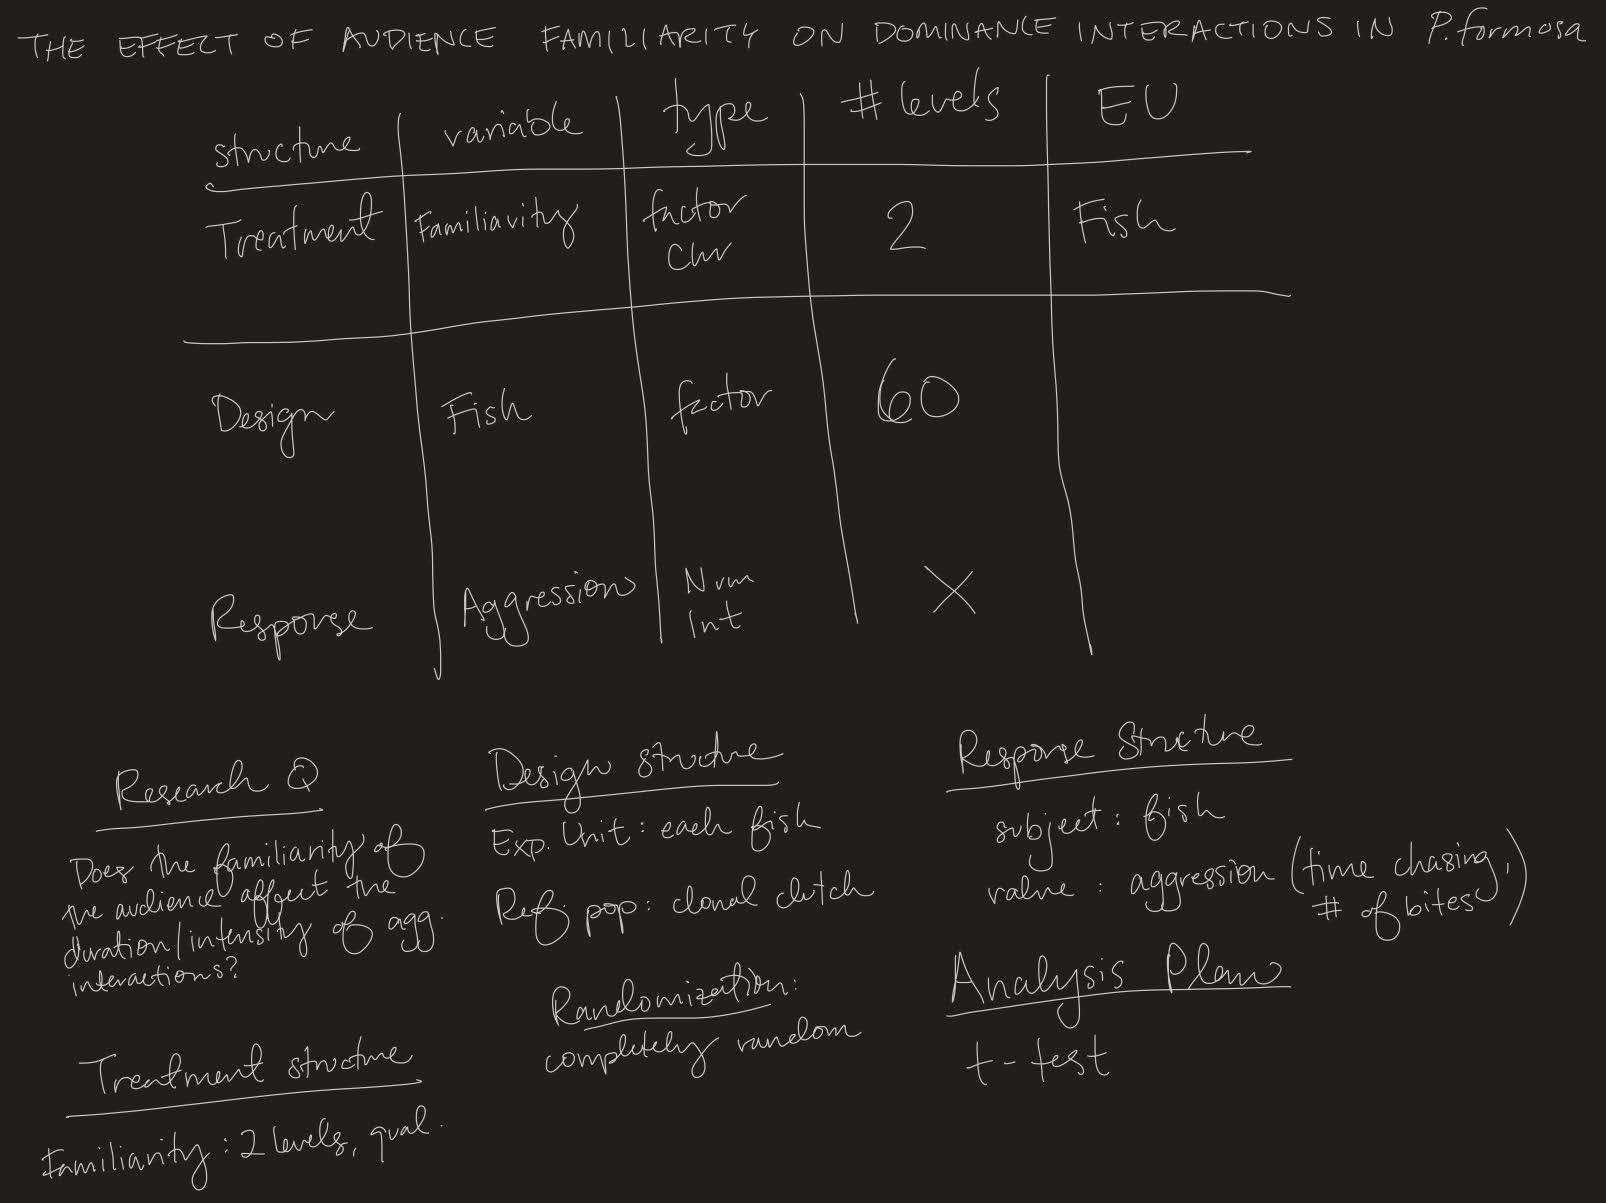 THE EFFECT OF AUDIENCE FAMILIARITY ON DOMINANCE INTERACTIONS IN P. formosa
structure variable type # levels EU
Treatment Familiarity factor 2 Fish
Chr
Design Fish factor 60
Response Aggression Num X
Int
Research Q
Does the familiarity of
the audience affect the
duration/intensity of agg.
interactions?
Treatment structure
Familiarity: 2 levels, qual.
Design structure
Exp. Unit: each fish
Ref. pop: clonal clutch
Randomization:
completely random
Response Structure
subject: fish
value: aggression (time chasing,
# of bites)
Analysis Plan
t-test